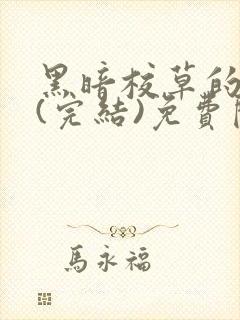 黑暗校草的
(完結)免費
馬永福